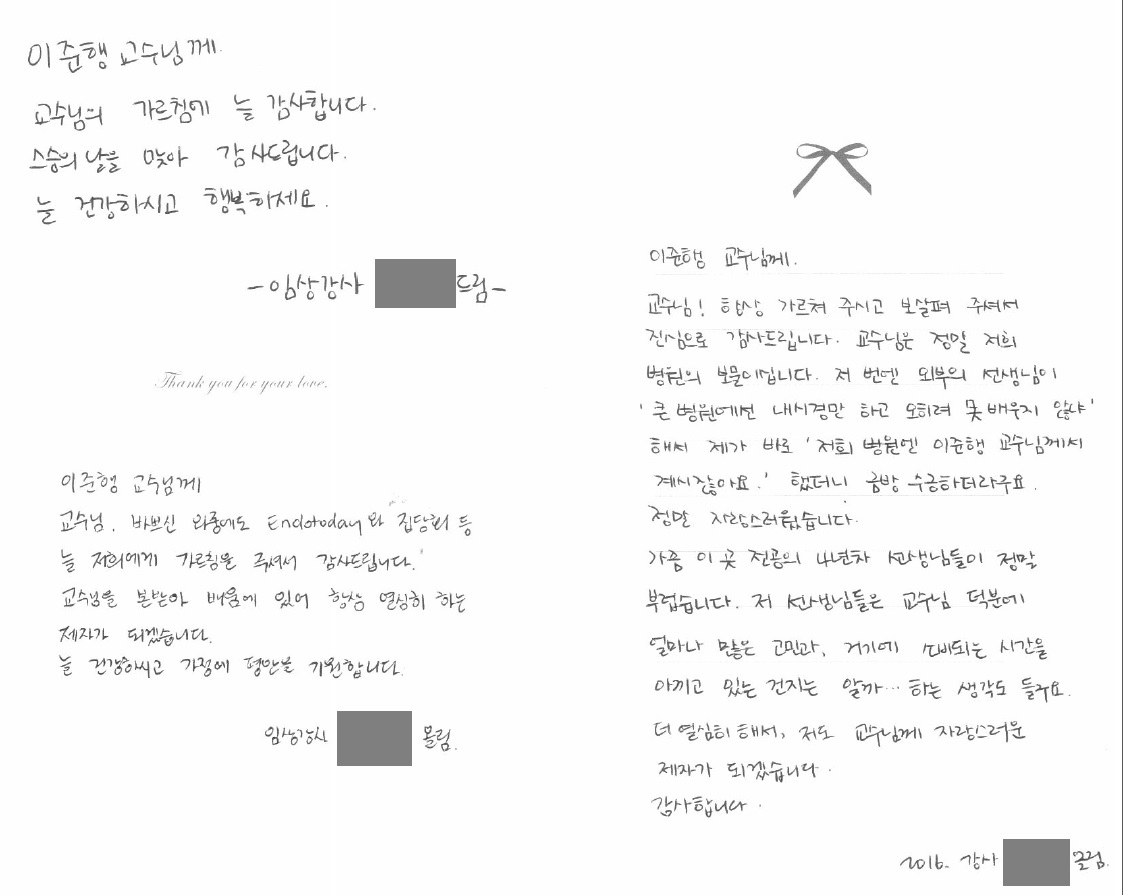 이준행 교수님께.
교수님의 가르침에 늘 감사합니다.
스승의 날을 맞아 감사드립니다.
늘 건강하시고 행복하세요.
- 임상강사 드림 -
Thank you for your love.
이준행 교수님께
교수님. 바쁘신 와중에도 Endotoday와 집담회 등
늘 저희에게 가르침을 주셔서 감사드립니다.
교수님을 본받아 배움에 있어 항상 열심히 하는
제자가 되겠습니다.
늘 건강하시고 가정에 평안을 기원합니다.
임상강사 올림.
이준행 교수님께.
교수님! 항상 가르쳐 주시고 보살펴 주셔서
진심으로 감사드립니다. 교수님은 정말 저희
병원의 보물이십니다. 저번엔 외부의 선생님이
'큰 병원에선 내시경만 하고 오히려 못 배우지 않냐'
해서 제가 바로 '저희 병원엔 이준행 교수님께서
계시잖아요.' 했더니 금방 수긍하더라구요.
정말 자랑스러웠습니다.
가끔 이 곳 전공의 4년차 선생님들이 정말
부럽습니다. 저 선생님들은 교수님 덕분에
얼마나 많은 고민과, 거기에 소비되는 시간을
아끼고 있는 건지는 알까… 하는 생각도 들구요.
더 열심히 해서, 저도 교수님께 자랑스러운
제자가 되겠습니다.
감사합니다.
2016. 강사 올림.